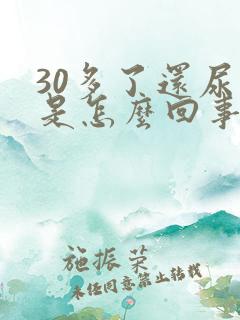 30多了還尿
是怎麼回事
施振荣
未经同意禁止转载